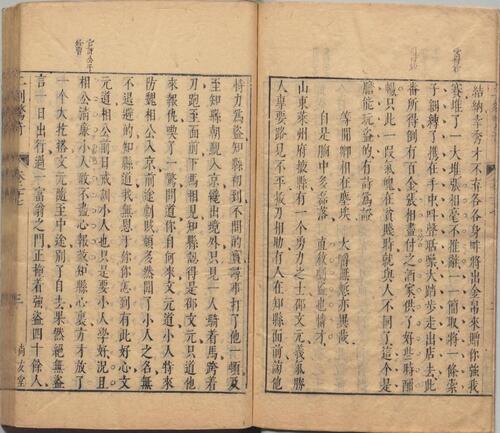 結納幸秀才不吝各各身畔將出金帛來贈你強我
賽堆了一大堆張相毫不推辭一一簡取將一條索
子綑縛了攜在手中叫聲聒噪大踏步走出店去此
番所得倒有百金張相盡付之酒家供了好些時酣
暢只此一段氣魄在貧賤時就與人不同了這个是
膽能玩盜的有詩為證
等閒卿相在塵埃　大嚼無慙亦異哉
自是胸中多磊落　直教剧盜也憐才
山東萊州府掖縣有一个勇力之士邵文元義氣勝
人專要路見不平拔刀相助有人在知縣面前謗他
恃力為盜知縣初到不問的實尋事打了他一頓及
至知縣朝覲入京纔出境外只見一人騎着馬跨着
刀跑至面前下馬相見知縣認得是邵文元只道他
來報仇喫了一驚問道你自何來文元道小人特來
防衛相公入京前途劇賊頗多然聞了小人之名無
不退避的知縣道我無恩于你你怎到有此好心文
元道相公前日戒訓小人也只是要小人學好况且
相公清廉小人敢不盡心報效知縣心裏方才放了
一个大疙瘩文元隨至中途別了自去果然絕無盜
言一日出行過一富翁之門正撞着強盜四十餘人
二刻驚奇　卷二十七　三　尚友堂